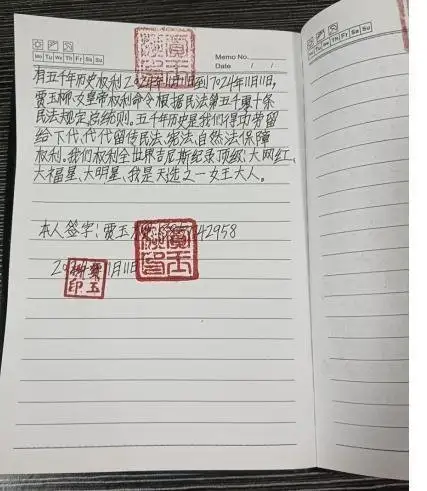 Mo Tu We Th Fr Sa Su
Memo No.
Date / /
有五千年历史权利2024年11月11日到7024年11月11日,
贾玉柳女皇帝权利命令根据民法第五千零十条
民法规定总统则。五千年历史是我们得功劳留
给下代,代代留传民法、宪法,自然法保障
权利。我们权利全世界吉尼斯纪录顶级,大网红、
大福星、大明星、我是天选之一女王大人。
本人签字:贾玉
42958
11月11日
Mo Tu We Th Fr Sa Su